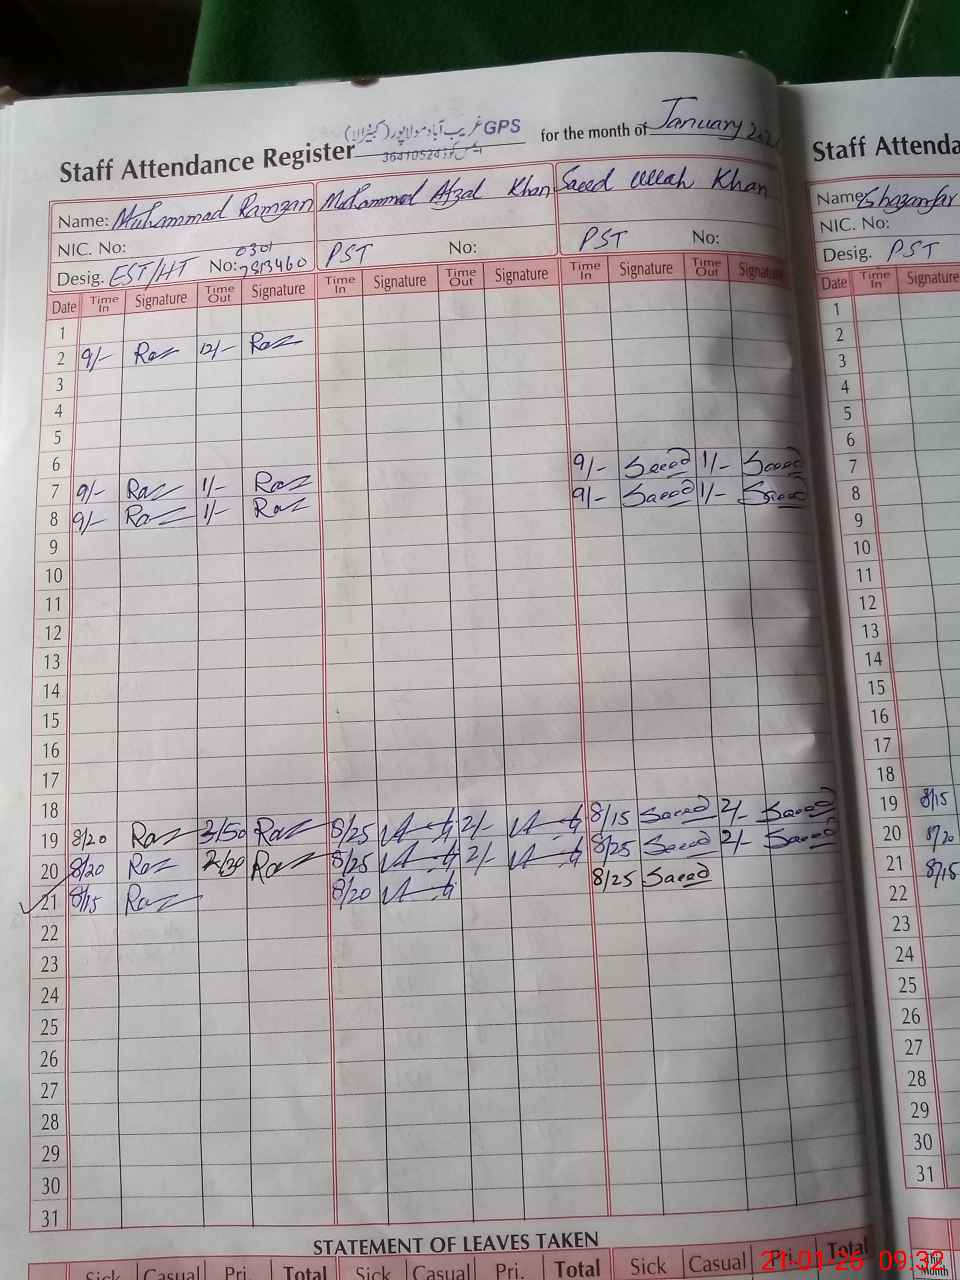 غریب آباد مولاپور (کبیروالا) GPS
Staff Attendance Register for the month of January
Name: Muhammad Ramzan Mohammad Afzal Khan Saeed Ullah Khan
NIC. No: 0301
Desig. EST/HT No: 7813460 PST No: PST No:
Date Time In Signature Time Out Signature Time In Signature Time Out Signature Time In Signature Time Out Signature
1
2 9/- Raz 12/- Raz
3
4
5
6
7 9/- Raz 1/- Raz 9/- Saeed 1/- Saeed
8 9/- Raz 1/- Raz 9/- Saeed 1/- Saeed
9
10
11
12
13
14
15
16
17
18
19 8/20 Raz 2/50 Raz 8/25 2/- 8/15 Saeed 2/- Saeed
20 8/20 Raz 2/30 Raz 8/25 2/- 8/25 Saeed 2/- Saeed
21 8/15 Raz 8/20 8/25 Saeed
22
23
24
25
26
27
28
29
30
31
STATEMENT OF LEAVES TAKEN
Sick Casual Pri. Total Sick Casual Pri. Total Sick Casual Pri. Total
Staff Attenda
Name
NIC. No:
Desig. PST
Date Time In Signature
1
2
3
4
5
6
7
8
9
10
11
12
13
14
15
16
17
18
19 8/15
20 8/20
21 8/15
22
23
24
25
26
27
28
29
30
31
This Month
21-01-26 09:32